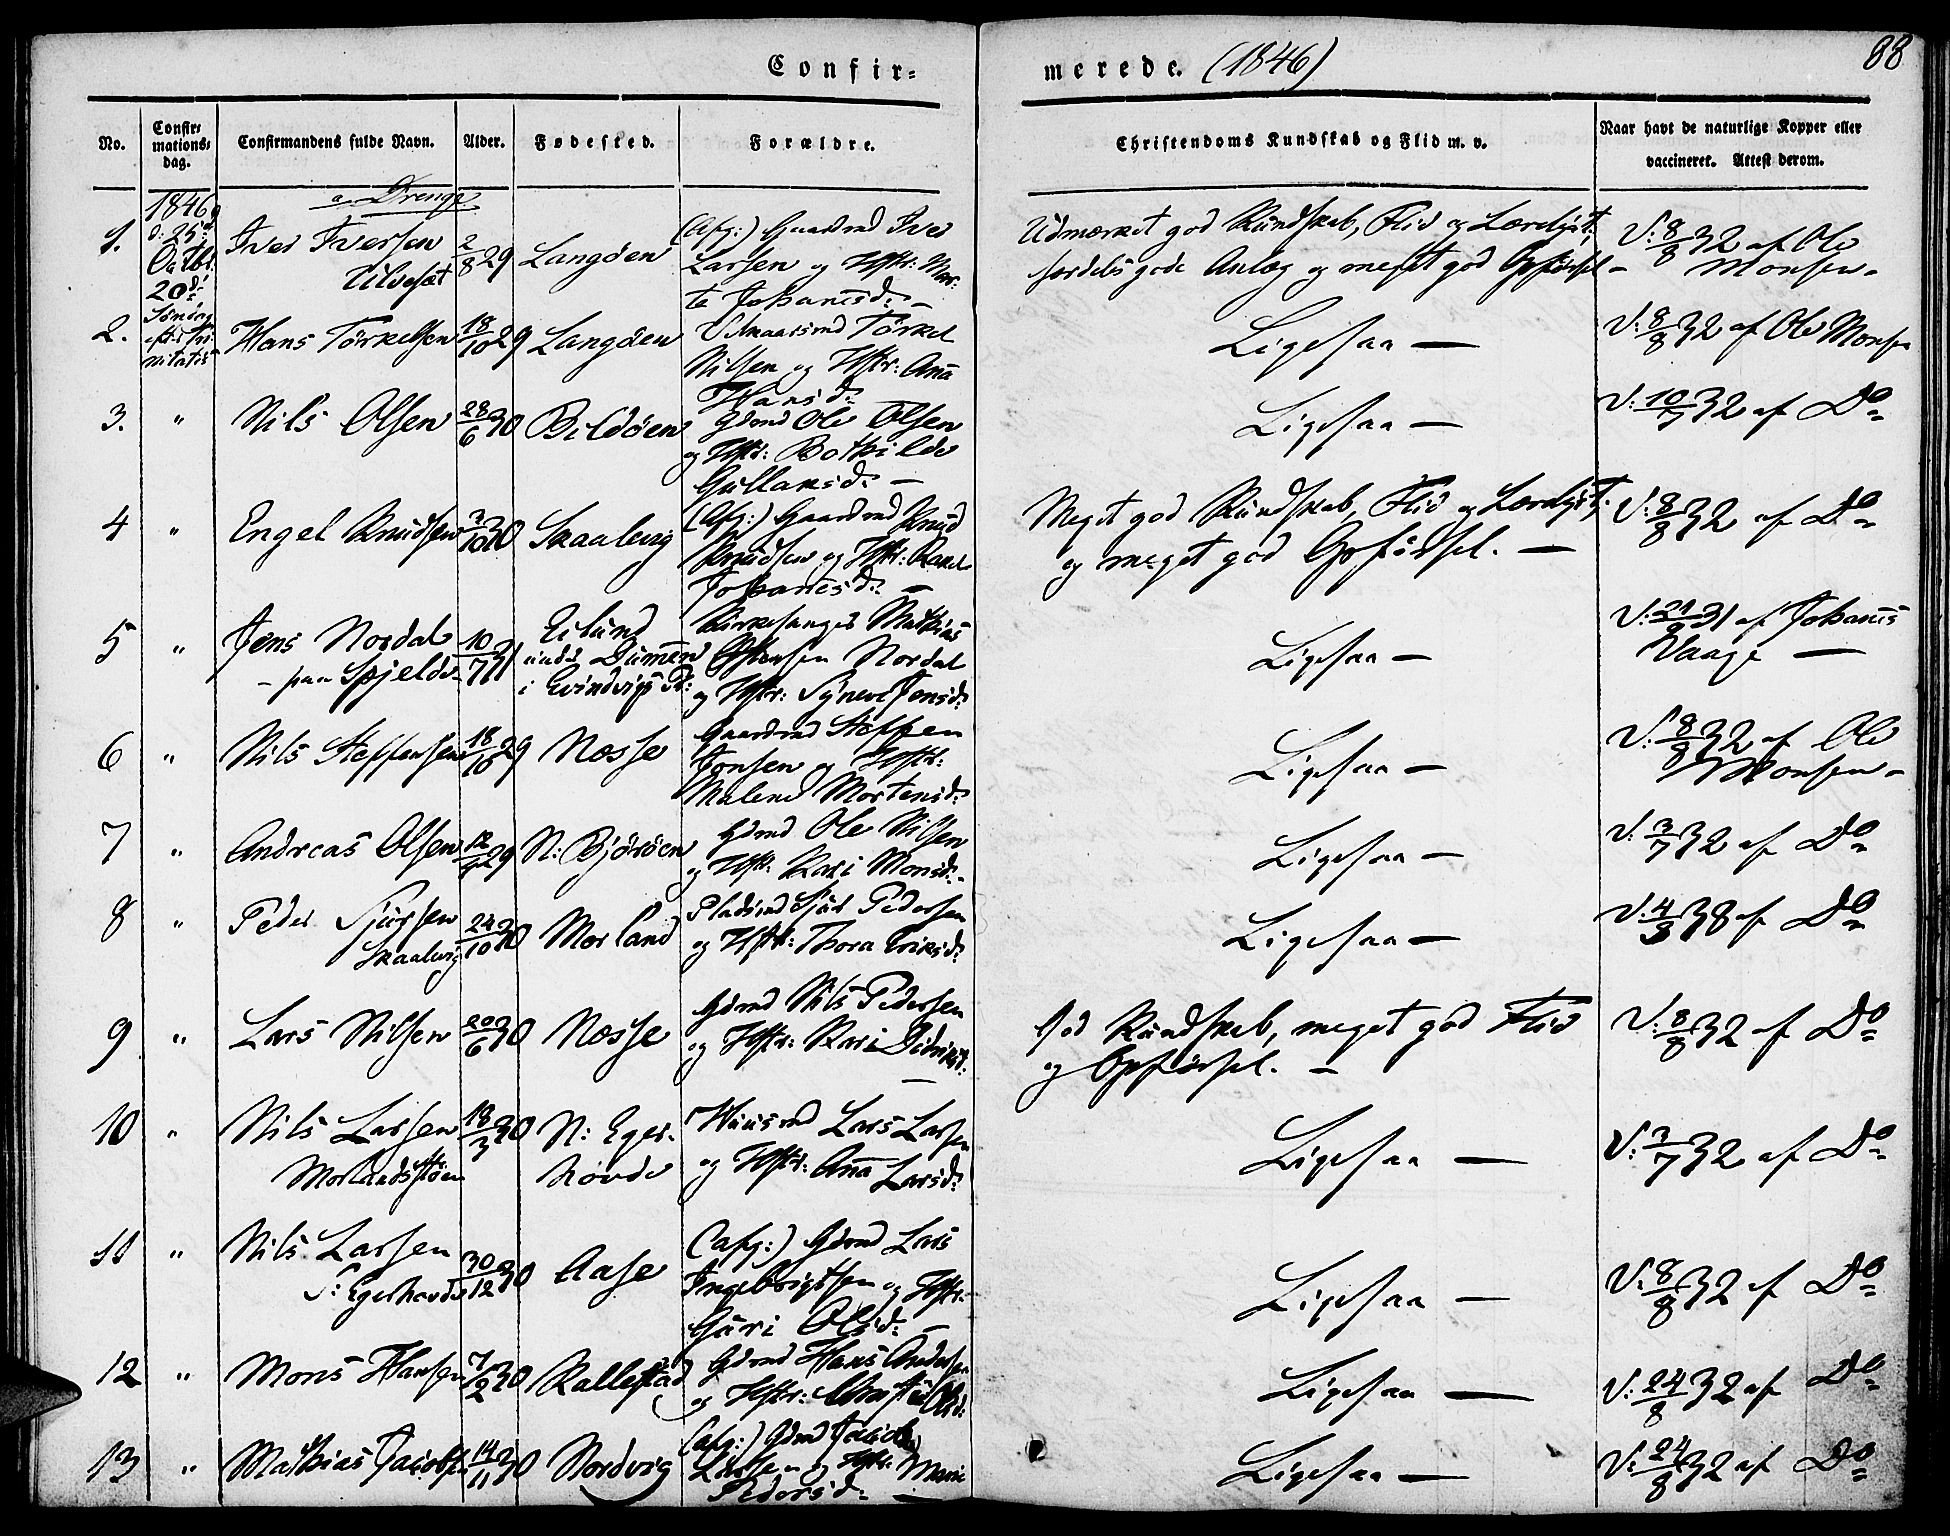 Confir=
merede. (1846)
88
No.
Confir=
mations=
dag.
Confirmandens fulde Navn.
Alder.
Fødested.
Forældre.
Christendoms Kundskab og Flid m. v.
Naar havt de naturlige Kopper eller
vaccineret. Attest derom.
1846
d: 25d
Octbr.
20d:
Søndag
eft: Tri-
nitatis
a. Drenge
1.
Iver Iversen
2/8 29
Langøen
(Afg:) Gaardmd Iver
Larsen og Hstr: Mar-
ta Johannesd: –
Udmærket god Kundskab, Flid og Lærelyst,
særdeles gode Anlæg og meget god Opførsel –
V: 8/8 32 af Ole
Monsen –
2.
Hans Torkelsen
18/10 29
Langøen
Torkel
Nilsen og Hstr: Anna
Hansd:
Ligesaa –
V: 8/8 32 af Ole Monsen
3.
"
Nils Olsen
28/6 30
Bildøen
Gdmd Ole Olsen
og Hstr: Bothilde
Gullaksd: –
Ligesaa –
V: 10/9 32 af Do
4
"
Engel Knudsen
Skaalevig
(Afg:) Gaardmd Knud
Knudsen og Hstr: Rakel
Johannesd: –
Meget god Kundskab, Flid og Lærelyst,
og meget god Opførsel. –
V: 8/8 32 af Do
5
"
Jens Nordal
– paa Spjelde –
10/7 31
Eilund
under
i Evindvigs Pr:
Kirkesanger Mathias
Nordal
og Hstr: Synneve Jensd:
Ligesaa –
V: 31 af Johannes
Vaage –
6
"
Nils Steffensen
18/10 29
Nesse
Gaardmd Steffen
Jonsen og Hstr:
Malene Mortensd:
Ligesaa –
V: 8/8 32 af Ole
Monsen –
7
"
Andreas Olsen
29
N: Bjørøen
Gdmd Ole Nilsen
og Hstr: Kari Monsd: –
Ligesaa –
V: 3/7 32 af Do
8
"
Peder Sjursen
Skaalevig
24/10 30
Morland
Pladsmd Sjur Pedersen
og Hstr: Thora Eriksd:
Ligesaa –
V: 4/3 38 af Do
9
"
Lars Nilsen
20/6 30
Nesse
Gdmd Nils Pedersen
og Hstr: Kari Didriksd: –
God Kundskab, meget god Flid
og Opførsel. –
V: 8/8 32 af Do
10
"
Nils Larsen
Morlandsstøen
18/3 30
N: Eger-
hovde
Huusmd Lars Larsen
og Hstr: Anna Larsd:
Ligesaa –
V: 3/7 32 af Do
11
"
Nils Larsen
S: Egerhovde
30/12 30
Aase
(afg:) Gdmd Lars
Ingebrigtsen og Hstr:
Guri Olsd: –
Ligesaa –
V: 8/8 32 af Do
12
"
Mons Hansen
7/2 30
Kallestad
Gdmd Hans Andersen
og Hstr: Olsd:
Ligesaa –
V: 24/8 32 af Do
13
"
Mathias Jacobsen
14/11 30
Nordvig
(afg:) Gdmd Jacob
Larsen og Hstr: Marie
Pedersd: –
Ligesaa –
V: 24/8 32 af Do